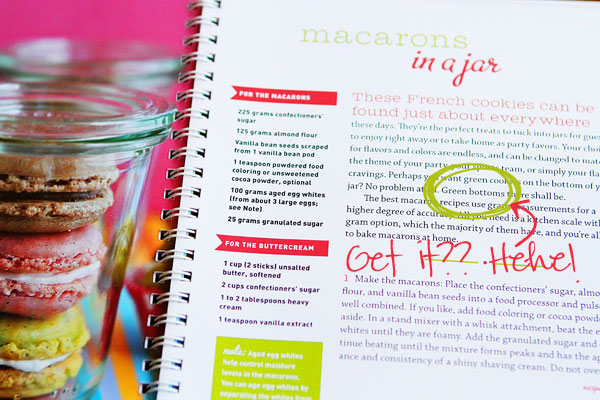 macarons
in a jar
FOR THE MACARONS
225 grams confectioners'
sugar
125 grams almond flour
Vanilla bean seeds scraped
from 1 vanilla bean pod
1 teaspoon powdered food
coloring or unsweetened
cocoa powder, optional
100 grams aged egg whites
(from about 3 large eggs;
see Note)
25 grams granulated sugar
FOR THE BUTTERCREAM
1 cup (2 sticks) unsalted
butter, softened
2 cups confectioners' sugar
1 to 2 tablespoons heavy
cream
1 teaspoon vanilla extract
note: Aged egg whites
help control moisture
levels in the macarons.
You can age egg whites by
separating the whites from
These French cookies can be
found just about everywhere
these days. They're the perfect treats to tuck into jars for gues
to enjoy right away or to take home as party favors. Your choi
for flavors and colors are endless, and can be changed to mat
the theme of your party, your team, or simply your fla
cravings. Perhaps you want green cookies on the bottom of y
jar? No problem at all. Green bottoms there shall be.
The best macaron recipes use gram measurements for a
higher degree of accuracy. All you need is a kitchen scale with
gram option, which the majority of them have, and you're all
to bake macarons at home.
Get it?? · Hehe!
1 Make the macarons: Place the confectioners' sugar, almon
flour, and vanilla bean seeds into a food processor and pulse
well combined. If you like, add food coloring or cocoa powde
aside. In a stand mixer with a whisk attachment, beat the e
whites until they are foamy. Add the granulated sugar and
tinue beating until the mixture forms peaks and has the ap
ance and consistency of a shiny shaving cream. Do not over